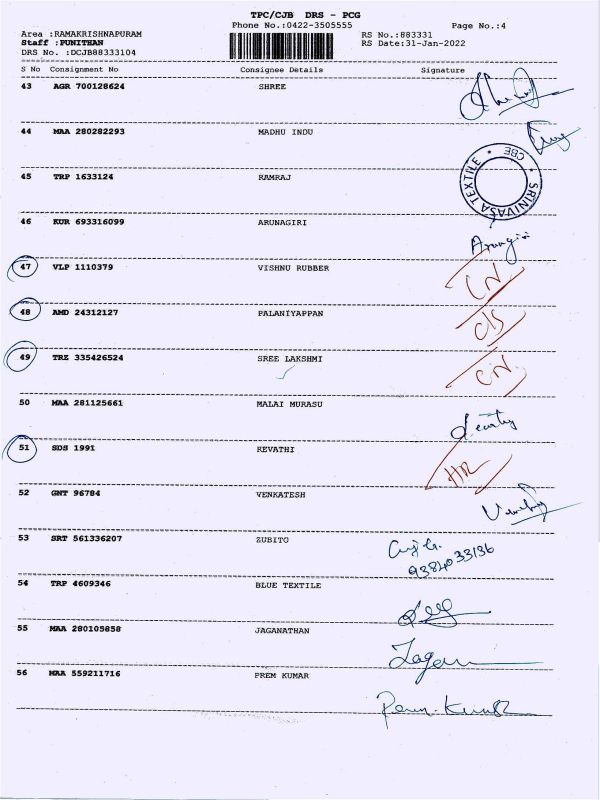 TPC/CJB DRS - PCG
Phone No.:0422-3505555 Page No.:4
Area :RAMAKRISHNAPURAM RS No.:883331
Staff :PUNITHAN RS Date:31-Jan-2022
DRS No. :DCJB88333104
S No Consignment No Consignee Details Signature
43 AGR 700128624 SHREE
44 MAA 280282293 MADHU INDU
45 TRP 1633124 RAMRAJ
SRINIVASA TEXTILE * CBE *
46 KUR 693316099 ARUNAGIRI
Arunagiri
47 VLP 1110379 VISHNU RUBBER
C/N
48 AMD 24312127 PALANIYAPPAN
C/S
49 TRZ 335426524 SREE LAKSHMI
C/N
50 MAA 281125661 MALAI MURASU
51 SDS 1991 REVATHI
52 GNT 96784 VENKATESH
53 SRT 561336207 ZUBITO
9384033136
54 TRP 4609346 BLUE TEXTILE
55 MAA 280105858 JAGANATHAN
Jagan
56 MAA 559211716 PREM KUMAR
Prem. Kumar